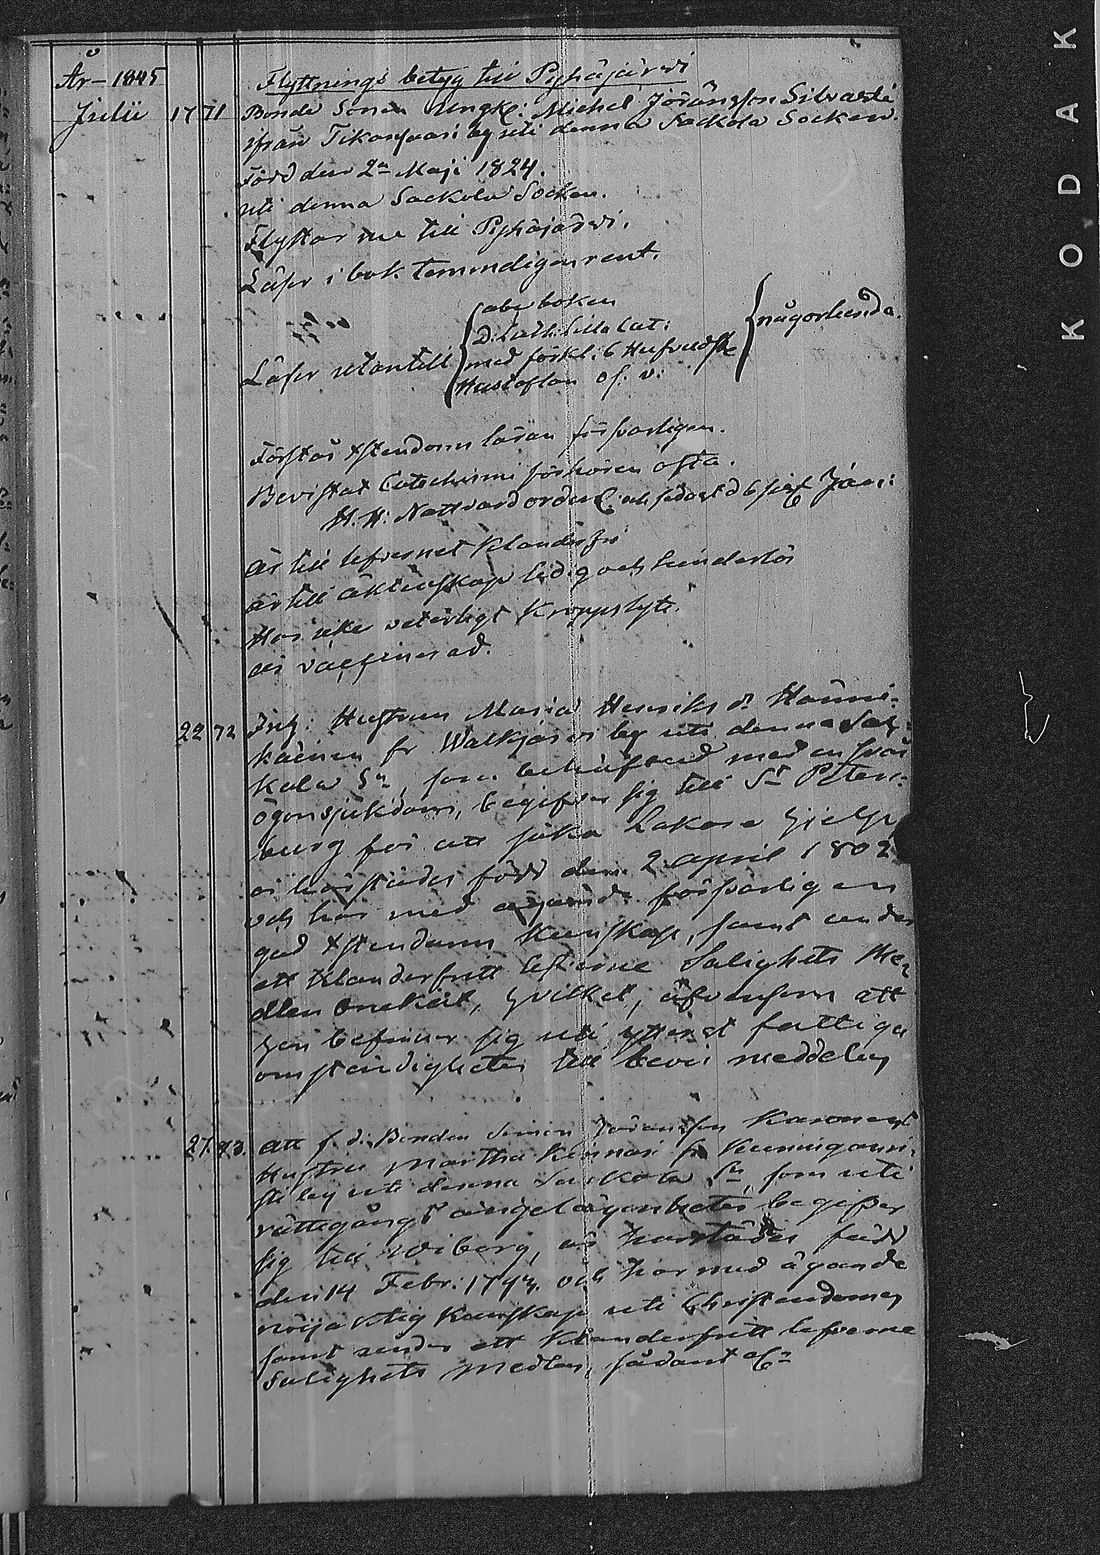 År 1845
Flyttnings betyg till Pyhäjärwi
Julii 17 71 Bonde Sonen Ungk: Michel Jöransson Silvasti
ifrån by uti denna Sackola Socken.
Född den 2n Maji 1824.
uti denna Sackola Socken.
Flyttar nu till Pyhäjärwi.
Läser i bok temmeligen rent.
abc boken
D: Luth: lilla Cat:
någorlunda.
Läser utantill med förkl: 6 Hufvudst
Hustaflan
Förstår Xstendoms läran försvarligen.
Bevistat Catechismi förhören ofta.
H. H: Nattvard Janr:
är till lefvernet klanderfri
är till äktenskap ledig och hinderlös
Har icke veterligt kroppslyte.
är vaccinerad.
22 72 Hustrun Maria Henriks dr Hänni-
käinen fr Walkjärvi by uti denna Sac-
kola Sn, som behäftad med en svår
ögonsjukdom, begifver sig till St Peters-
burg för att söka Läkare Hjelp
är härstädes född den 2 april 1802
och har med ägande försvarligen
god Xstendoms kunskap, samt under
ett klanderfritt lefverne Salighets Me-
dlen hvilket, äfvensom att
hon befinner sig uti ytterst fattiga
omständigheter till bevis meddelas
27. 73. att f. d. Bonden Simon Jöransson
Hustru Martha fr
by uti denna Sackola Sn, som uti
rättegångs angelägenheter begifver
sig till Wiborg, är härstädes född
den 14 Febr: och har med ägande
kunskap uti Christendomen
samt under ett klanderfritt lefverne
Salighets medlen, sådant
KODAK